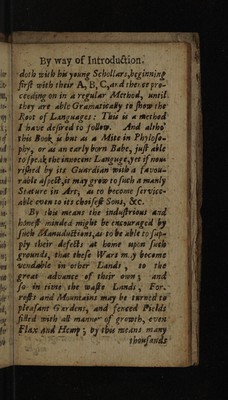 By way of Introduction.
doth with his young Schollars, beginning
first with their A, B, C, and thence pro-
ceeding on in a regular Method, until
they are able Gramatically to shew the
Root of Languages: This is a method
I have desired to follow. And altho'
this Book is but as a Mite in Philoso-
phy, or as an early born Babe, just able
to speak the innocent Languge, yet if nou-
rished by its Guardian with a favou-
rable aspect, it may grow to such a manly
Stature in Art, as to become service-
able even to its choisest Sons, &c.
By this means the industrious and
honest minded might be encouraged by
such Manuductions, as to be able to sup-
ply their defects at home upon such
grounds, that these Wars may became
vendable in other Lands, to the
great advance of their own; and
so in time the waste Lands, For-
rests and Mountains may be turned to
pleasant Gardens, and fenced Fields
filled with all manner of growth, even
Flax and Hemp; by this means many
thousands